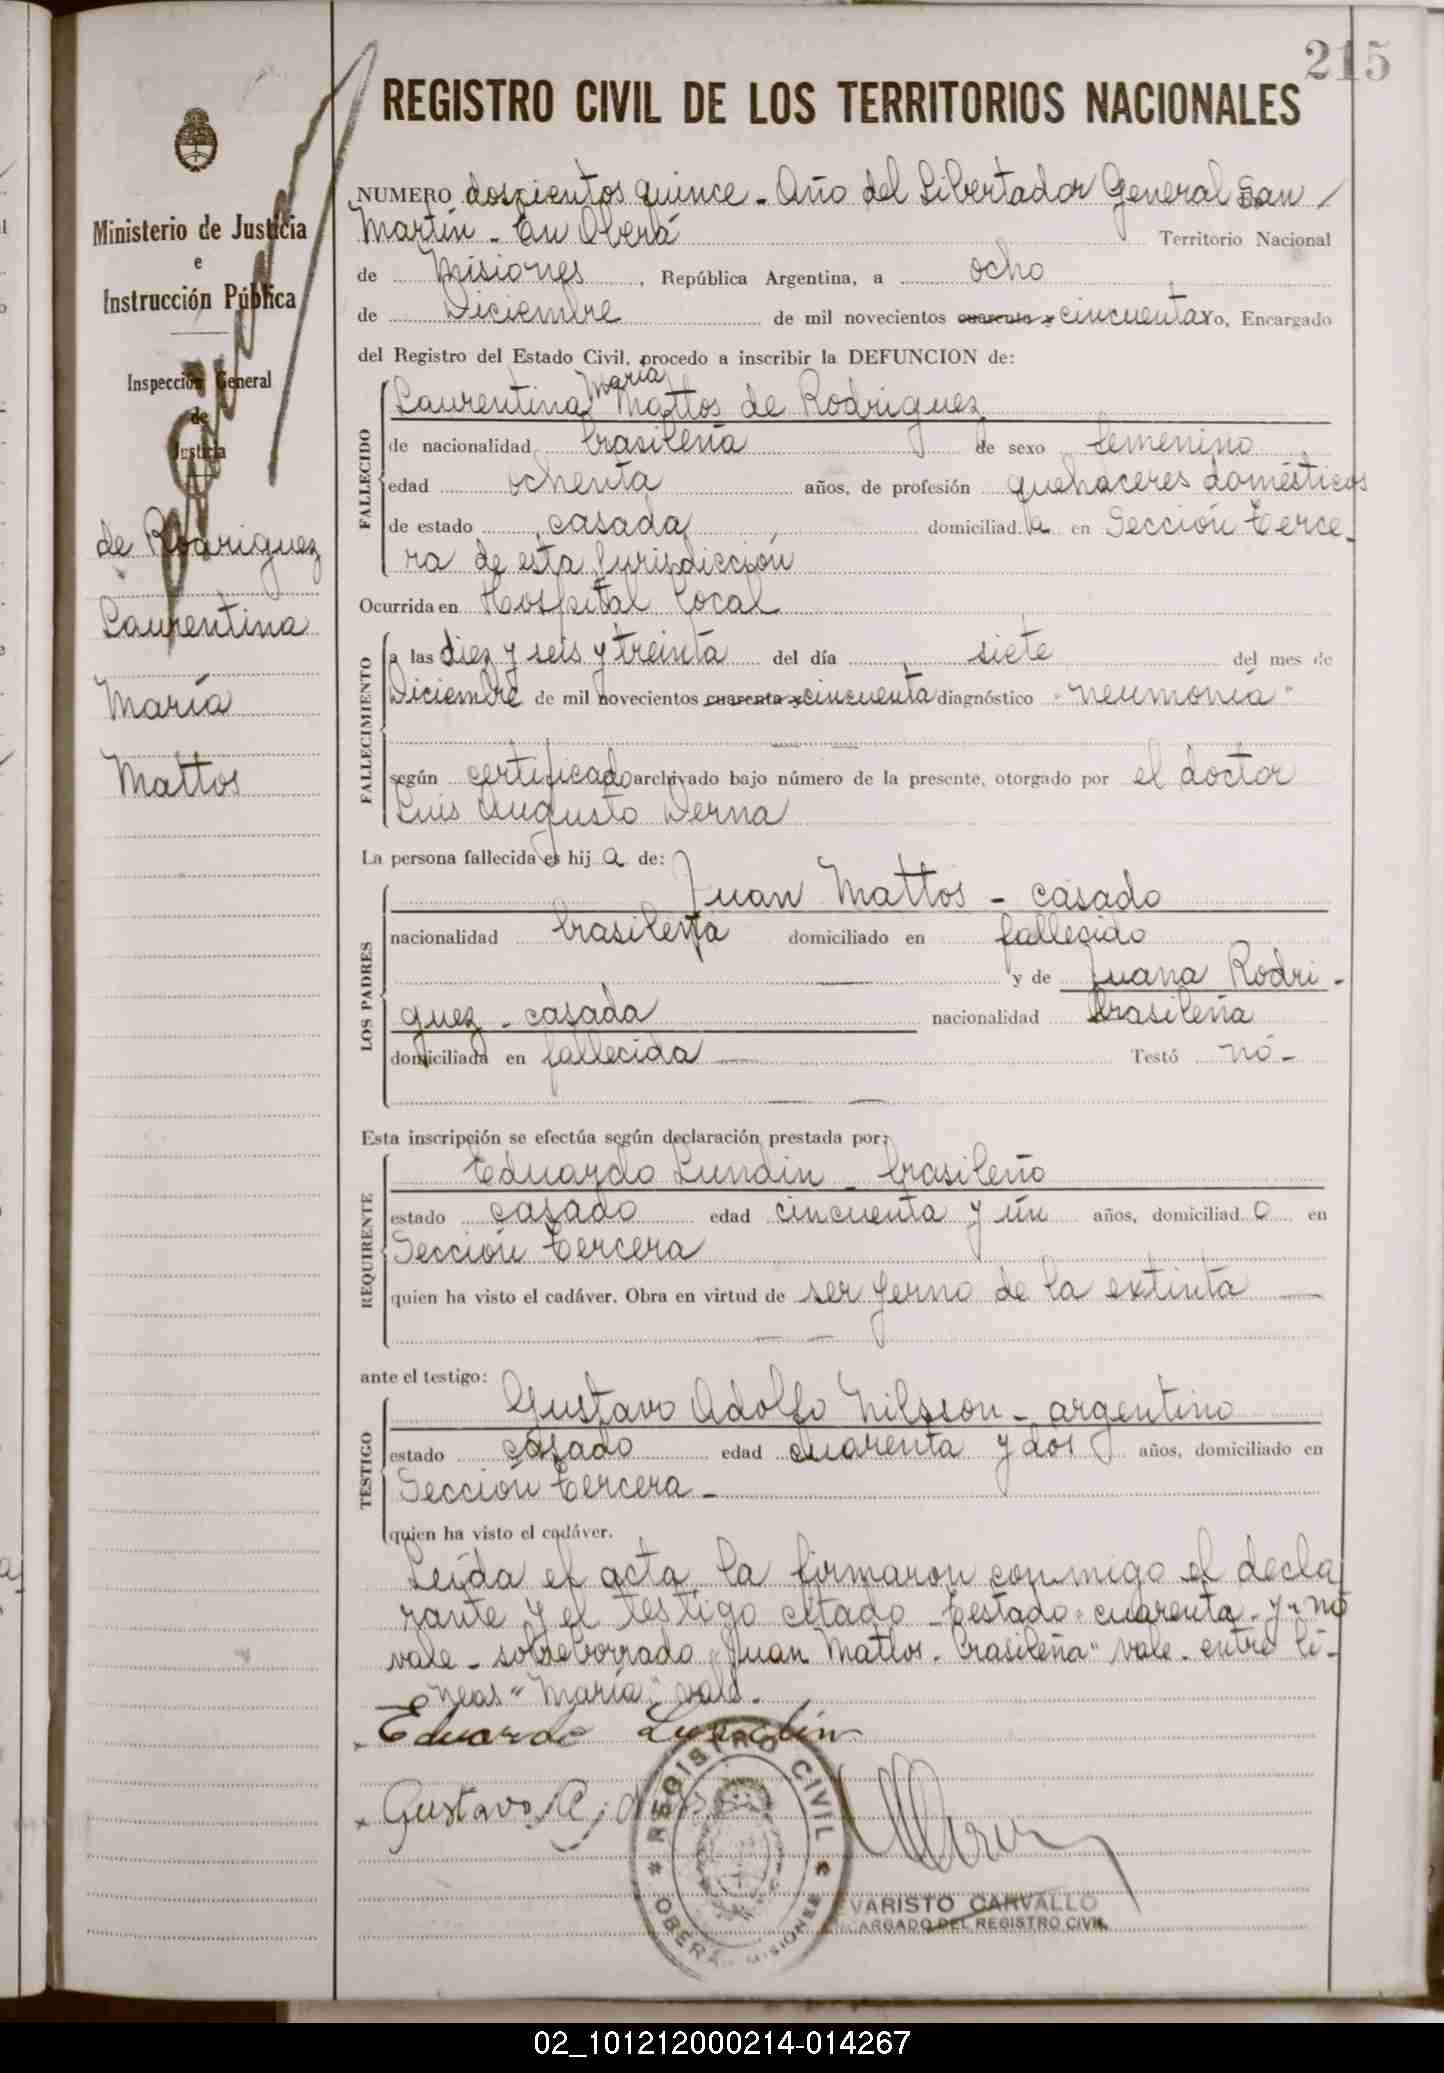 215
REGISTRO CIVIL DE LOS TERRITORIOS NACIONALES
Ministerio de Justicia
e
Instrucción Pública
Inspección General
de
Justicia
de Rodriguez
Laurentina
María
Mattos
NUMERO doscientos quince - Año del Libertador General San
Martín - En Oberá Territorio Nacional
de Misiones, República Argentina, a ocho
de Diciembre de mil novecientos cuarenta y cincuenta yo, Encargado
del Registro del Estado Civil, procedo a inscribir la DEFUNCION de:
FALLECIDO
María
Laurentina Mattos de Rodriguez
de nacionalidad brasileña de sexo femenino
edad ochenta años, de profesión quehaceres domésticos
de estado casada domiciliad a en Sección Terce-
ra de esta Jurisdicción
Ocurrida en Hospital local
FALLECIMIENTO
a las diez y seis y treinta del día siete del mes de
Diciembre de mil novecientos cuarenta y cincuenta diagnóstico "neumonía"
según certificado archivado bajo número de la presente, otorgado por el doctor
Luis Augusto Derna
La persona fallecida es hij a de:
LOS PADRES
Juan Mattos - casado
nacionalidad brasileña domiciliado en fallecido
y de Juana Rodri-
guez - casada nacionalidad brasileña
domiciliada en fallecida Testó nó-
Esta inscripción se efectúa según declaración prestada por:
REQUIRENTE
Eduardo Lundin - brasileño
estado casado edad cincuenta y ún años, domiciliad o en
Sección Tercera
quien ha visto el cadáver. Obra en virtud de ser yerno de la extinta
ante el testigo:
TESTIGO
Gustavo Adolfo Nilsson - argentino
estado casado edad cuarenta y dos años, domiciliado en
Sección Tercera -
quien ha visto el cadáver.
Leída el acta, la firmaron conmigo el decla
rante y el testigo citado - Testado: cuarenta - y - no
vale - sobreborrado "Juan Mattos - brasileña" vale - entre lí-
neas "María" vale.
Eduardo Lundin
Gustavo A.
REGISTRO CIVIL
OBERÁ - MISIONES
EVARISTO CARVALLO
ENCARGADO DEL REGISTRO CIVIL
02_101212000214-014267